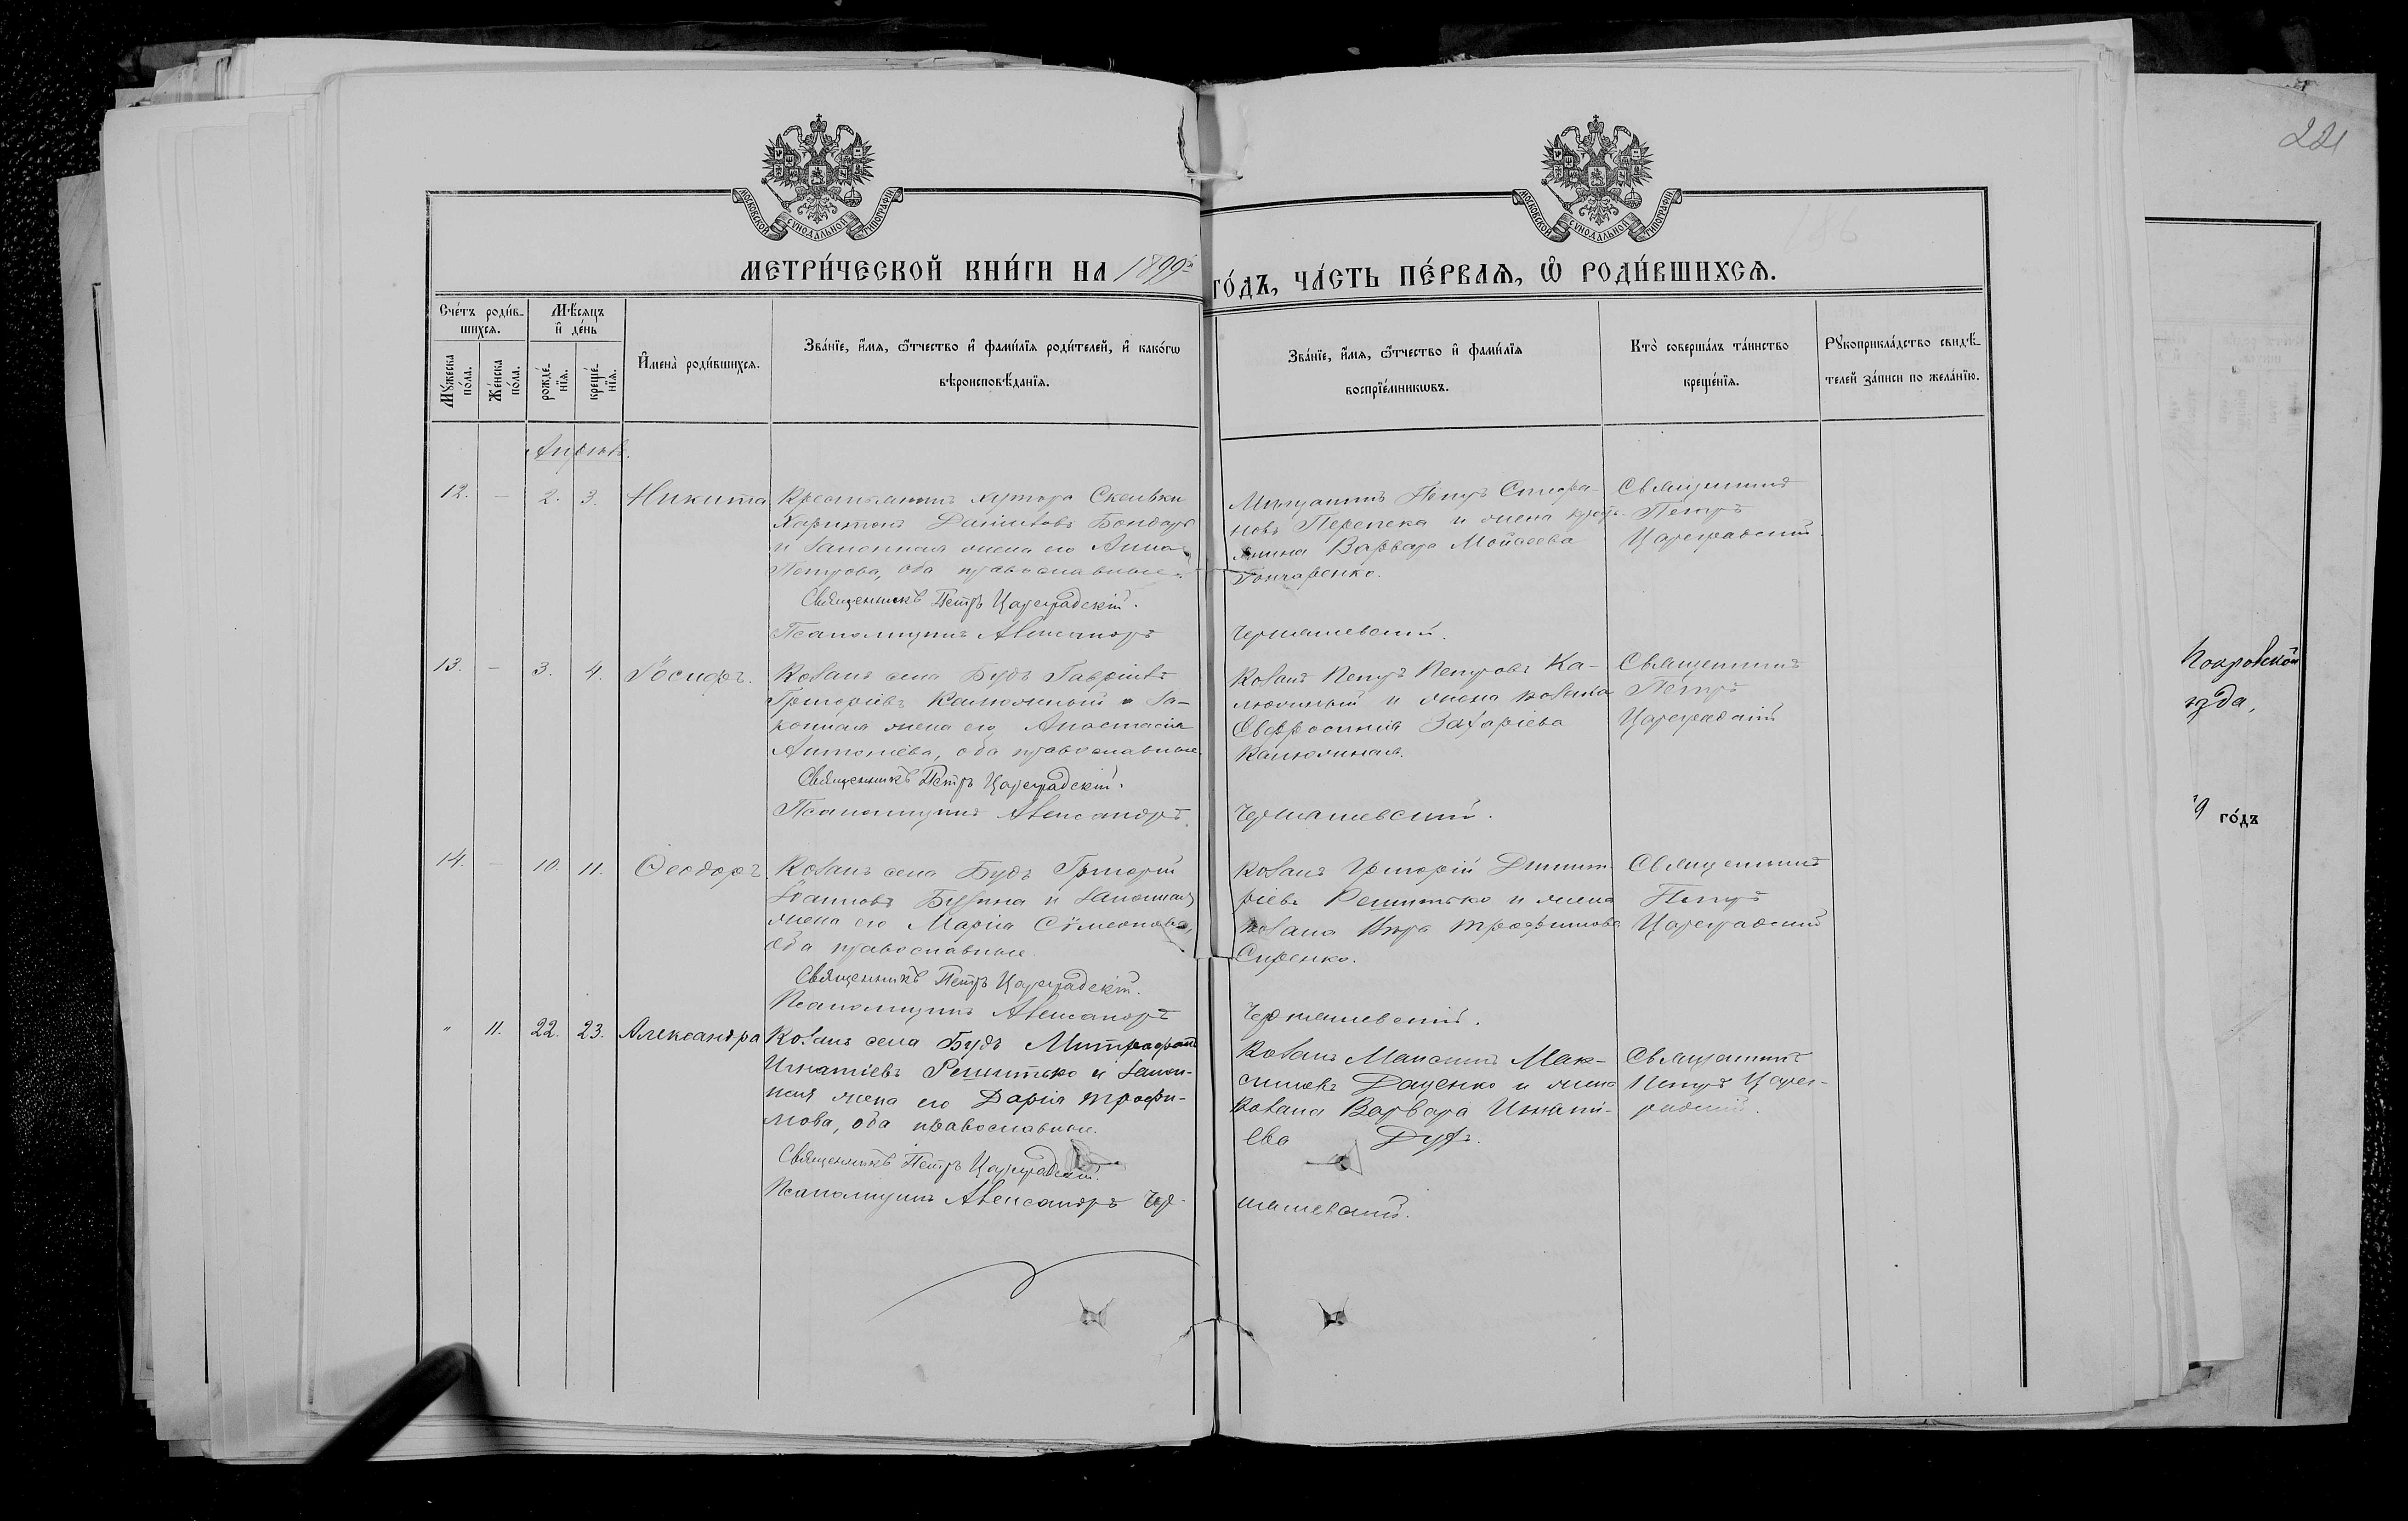 221
МОСКОВСКОЙ СѴНОДАЛЬНОЙ ТИПОГРАФІИ
МОСКОВСКОЙ СѴНОДАЛЬНОЙ ТИПОГРАФІИ
МЕТРИ́ЧЕСКОЙ КНИ́ГИ НА 1899й го́дъ, ча́сть пе́рваѧ, ѡ҆ роди́вшихсѧ.
Сче́тъ роди́в-
шихсѧ.
Мѣ́сѧцъ
и҆ де́нь
Мꙋ́жеска
по́ла.
Же́нска
по́ла.
рожде́-
нїѧ.
креще́-
нїѧ.
И҆мена̀ роди́вшихсѧ.
Зва́нїе, и҆́мѧ, ѻ҆́тчество и҆ фами́лїѧ роди́телей, и҆ како́гѡ
вѣроисповѣ́данїѧ.
Зва́нїе, и҆́мѧ, ѻ҆́тчество и҆ фами́лїѧ
воспрїе́мникѡвъ.
Кто̀ соверша́лъ та́инство
креще́нїѧ.
Рꙋкоприкла́дство свидѣ́-
телей за́писи по жела́нїю.
Апрѣль.
12. — 2. 3. Никита
Крестьянинъ хутора Скельки
Харитонъ Даніиловъ Бондарь
и законная жена его Анна
Петрова, оба православные.
Священникъ Петръ Цареградскій.
Псаломщикъ Александръ Чернышевскій.
Мѣщанинъ Петръ Стефа-
новъ Перепека и жена крестья-
нина Варвара Мойсеева
Гончаренко.
Священникъ
Петръ
Цареградскій.
13. — 3. 4. Іосифъ.
Козакъ села Будъ Гавріилъ
Григоріевъ Калюжный и за-
конная жена его Анастасія
Антоніева, оба православные.
Священникъ Петръ Цареградскій.
Псаломщикъ Александръ Чернышевскій.
Козакъ Петръ Петровъ Ка-
люжный и жена козака
Евфросинія Захаріева
Калюжная.
Священникъ
Петръ
Цареградскій
14. — 10. 11. Ѳеодоръ
Козакъ села Будъ Григорій
Іоанновъ Бузина и законная
жена его Марія Сѵмеонова,
оба православные.
Священникъ Петръ Цареградскій.
Псаломщикъ Александръ Чернышевскій.
Козакъ Григорій Димит-
ріевъ Решитько и жена
козака Вѣра Трофимова
Сиренко.
Священникъ
Петръ
Цареградскій
" 11. 22. 23. Александра
Козакъ села Будъ Митрофанъ
Игнатіевъ Решитько и закон-
ная жена его Дарія Трофи-
мова, оба православные.
Священникъ Петръ Цареградскій.
Псаломщикъ Александръ Чер-
нышевскій.
Козакъ Максимъ Мак-
симовъ Даценко и жена
козака Варвара Игнаті-
ева
Священникъ
Петръ Царег-
радскій.
Покровской
ѣзда,
9 го́дъ